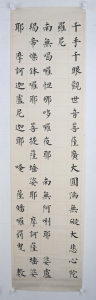 千手千眼觀世音菩薩廣大圓滿無礙大悲心陀
羅尼
南無喝囉怛那哆囉夜耶 南無阿唎耶 婆盧
羯帝爍鉢囉耶 菩提薩埵婆耶 摩訶薩埵婆
耶 摩訶迦盧尼迦耶 唵 薩皤囉罰曳 數